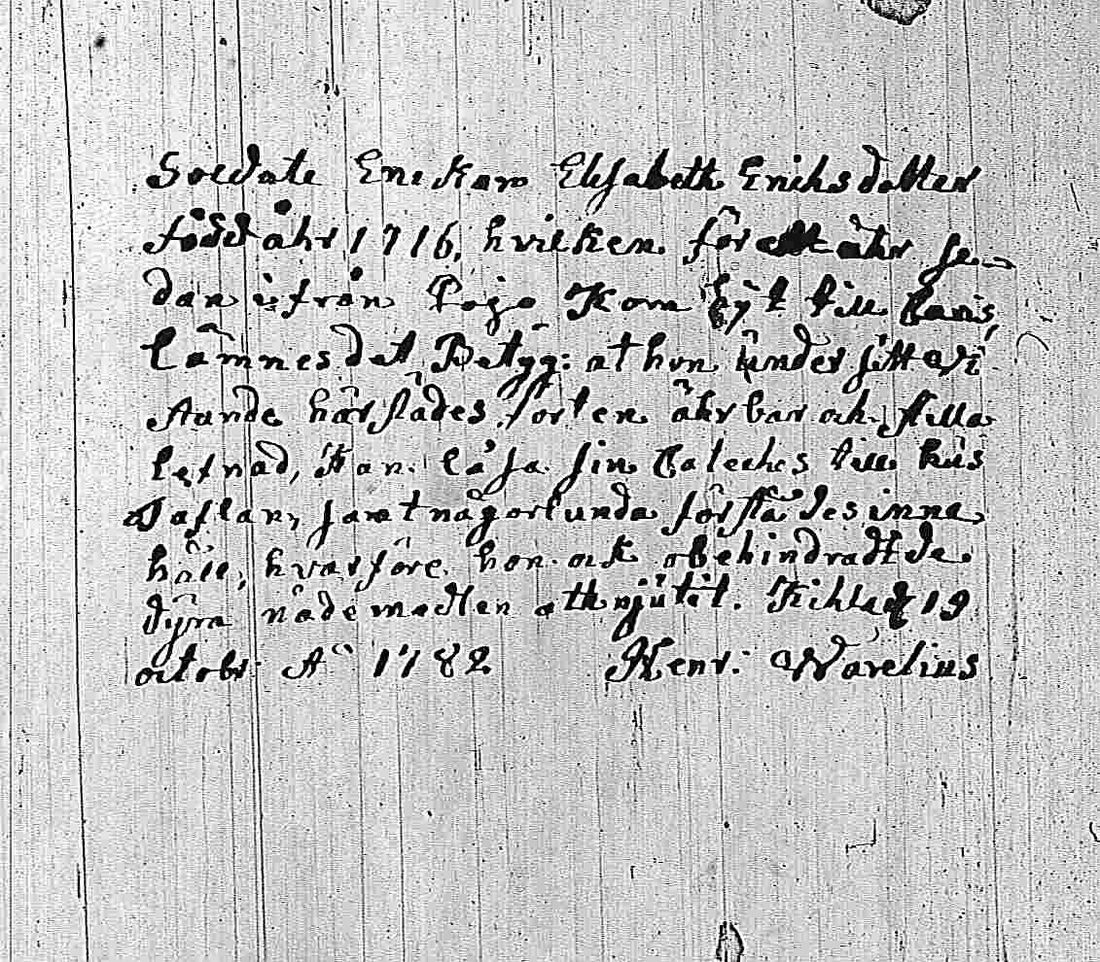 Soldate Enckan Elisabeth Erichsdotter
född åhr 1716, hvilken för ett åhr se-
dan ifrån Pojo kom hÿt till Caris,
Lämnes det Betÿg: at hon under sitt vi
stande härstädes, fört en ährbar och stilla
Lefnad, kan Läsa sin Cateches till hus
Taflan, samt någorlunda förstå des inne
håll, hvarföre hon ock obehindradt de
dÿra nådemedlen åthnjutit. Kihla d 19
octobr: A:o 1782 Henr: Warelius